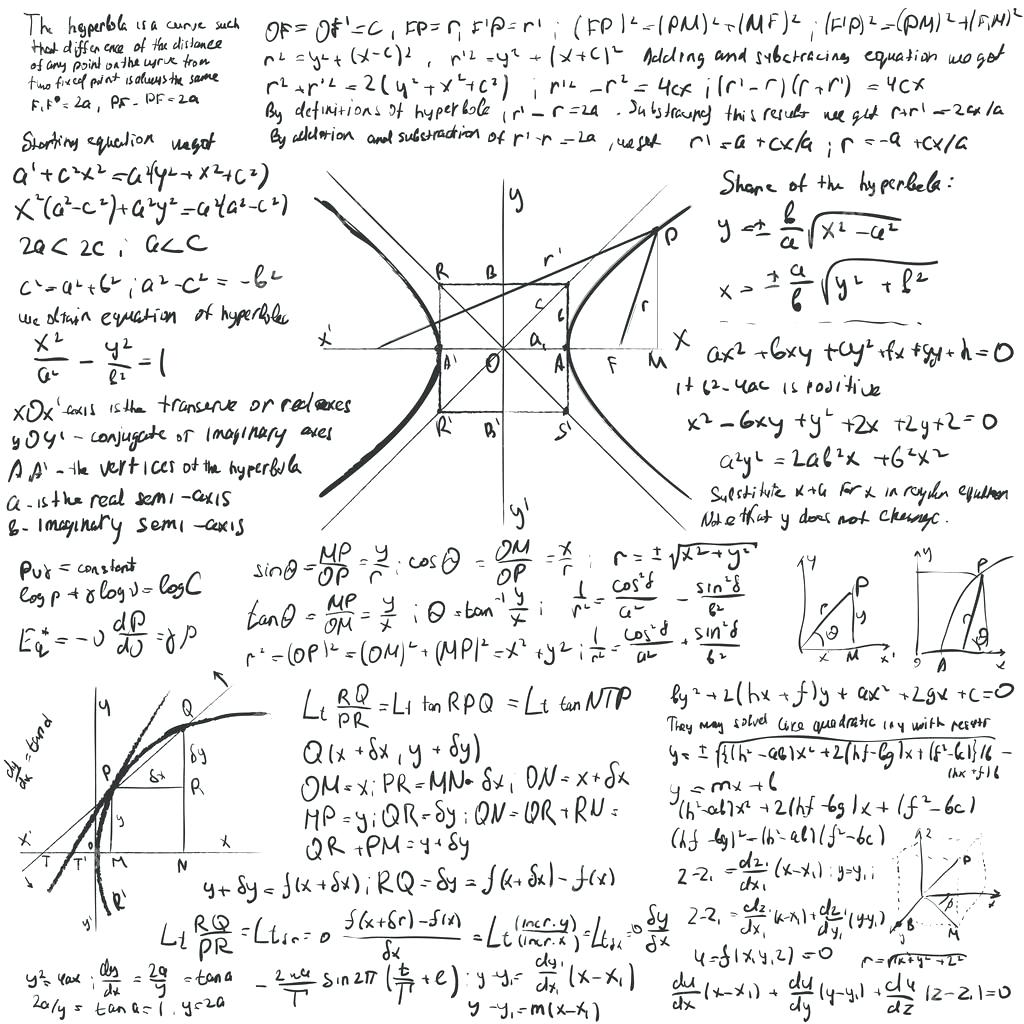 The hyperbola is a curve such
that difference of the distance
of any point on the curve from
two fixed point is always the same
F, F' = 2a, PF - PF = 2a
OF = OF' = C, FP = r, F'P = r' ; (FP)² = (PM)² + (MF)² ; (F'P)² = (PM)² + (F,M)²
r² = y² + (x-c)², r'² = y² + (x+c)² Adding and subctracing equation we get
r² + r'² = 2(y² + x² + c²) ; r'² - r² = 4cx ; (r' - r)(r + r') = 4cx
By definitions of hyperbola, r' - r = 2a. Substracting this results we get r + r' = 2cx/a
By addition and substraction of r' - r = 2a, we get r' = a + cx/a ; r = -a + cx/a
Starting equation we get
a' + c²x² = a²(y² + x² + c²)
x²(a² - c²) + a²y² = a²(a² - c²)
2a < 2c ; a < c
c² = a² + b² ; a² - c² = -b²
we obtain equation of hyperbola
x²/a² - y²/b² = 1
xOx' axis is the transerve or real axes
yOy' - conjugate or imaginary axes
A, A' - the vertices of the hyperbola
a - is the real semi-axis
b - imaginary semi-axis
y
R B r' P
c b r
x' a, x
A' O A F M
R' B' S'
y'
Shape of the hyperbola:
y = ± b/a √x² - a²
x = ± a/b √y² + b²
ax² + bxy + cy² + fx + gy + h = 0
if b² - 4ac is positive
x² - 6xy + y² + 2x + 2y + 2 = 0
a²y² = 2ab²x + b²x²
Substitute x+a for x in regular equation
Note that y does not change.
pvγ = constant
log p + γ log v = log C
E*q = -v dp/dv = γp
sinθ = MP/OP = y/r ; cosθ = OM/OP = x/r ; r = ± √x² + y²
tanθ = MP/OM = y/x ; θ = tan⁻¹ y/x ; 1/r² = cos²δ/a² - sin²δ/b²
r² = (OP)² = (OM)² + (MP)² = x² + y² ; 1/r² = cos²δ/a² + sin²δ/b²
y P
r y
θ
x M x'
y P
θ
A x
dy/dx = tan α
y Q
P δx δy
R
y
x' T T' O M N x
R'
y'
Lt RQ/PR = Lt tan RPQ = Lt tan NTP
Q(x + δx, y + δy)
OM = x ; PR = MN = δx ; ON = x + δx
MP = y ; QR = δy ; QN = QR + RN =
QR + PM = y + δy
y + δy = f(x + δx) ; RQ = δy = f(x + δx) - f(x)
Lt RQ/PR = Lt δx = 0 f(x + δx) - f(x)/δx = Lt (incr. y)/(incr. x) = Lt δx = 0 δy/δx
y² = 4ax ; dy/dx = 2a/y = tan a
2a/y = tan a = 1. y = 2a
- 2πa/T sin 2π (t/T + e) ; y - y, = dy₁/dx₁ (x - x₁)
y - y₁ = m(x - x₁)
by² + 2(hx + f)y + ax² + 2gx + c = 0
They may solved like quadratic in y with results
y = ± √{(h² - ab)x² + 2(hf - bg)x + (f² - bc)}/b -
(hx + f)/b
y = mx + b
(h² - ab)x² + 2(hf - bg)x + (f² - bc)
(hf - bg)² - (h² - ab)(f² - bc)
z - z₁ = dz₁/dx₁ (x - x₁) ; y = y₁ ;
z - z₁ = dz₁/dx₁ (x - x₁) + dz₁/dy₁ (y - y₁)
u = f(x, y, z) = 0
z
P
x
B M
y
r = √x² + y² + z²
du/dx (x - x₁) + du/dy (y - y₁) + du/dz (z - z₁) = 0